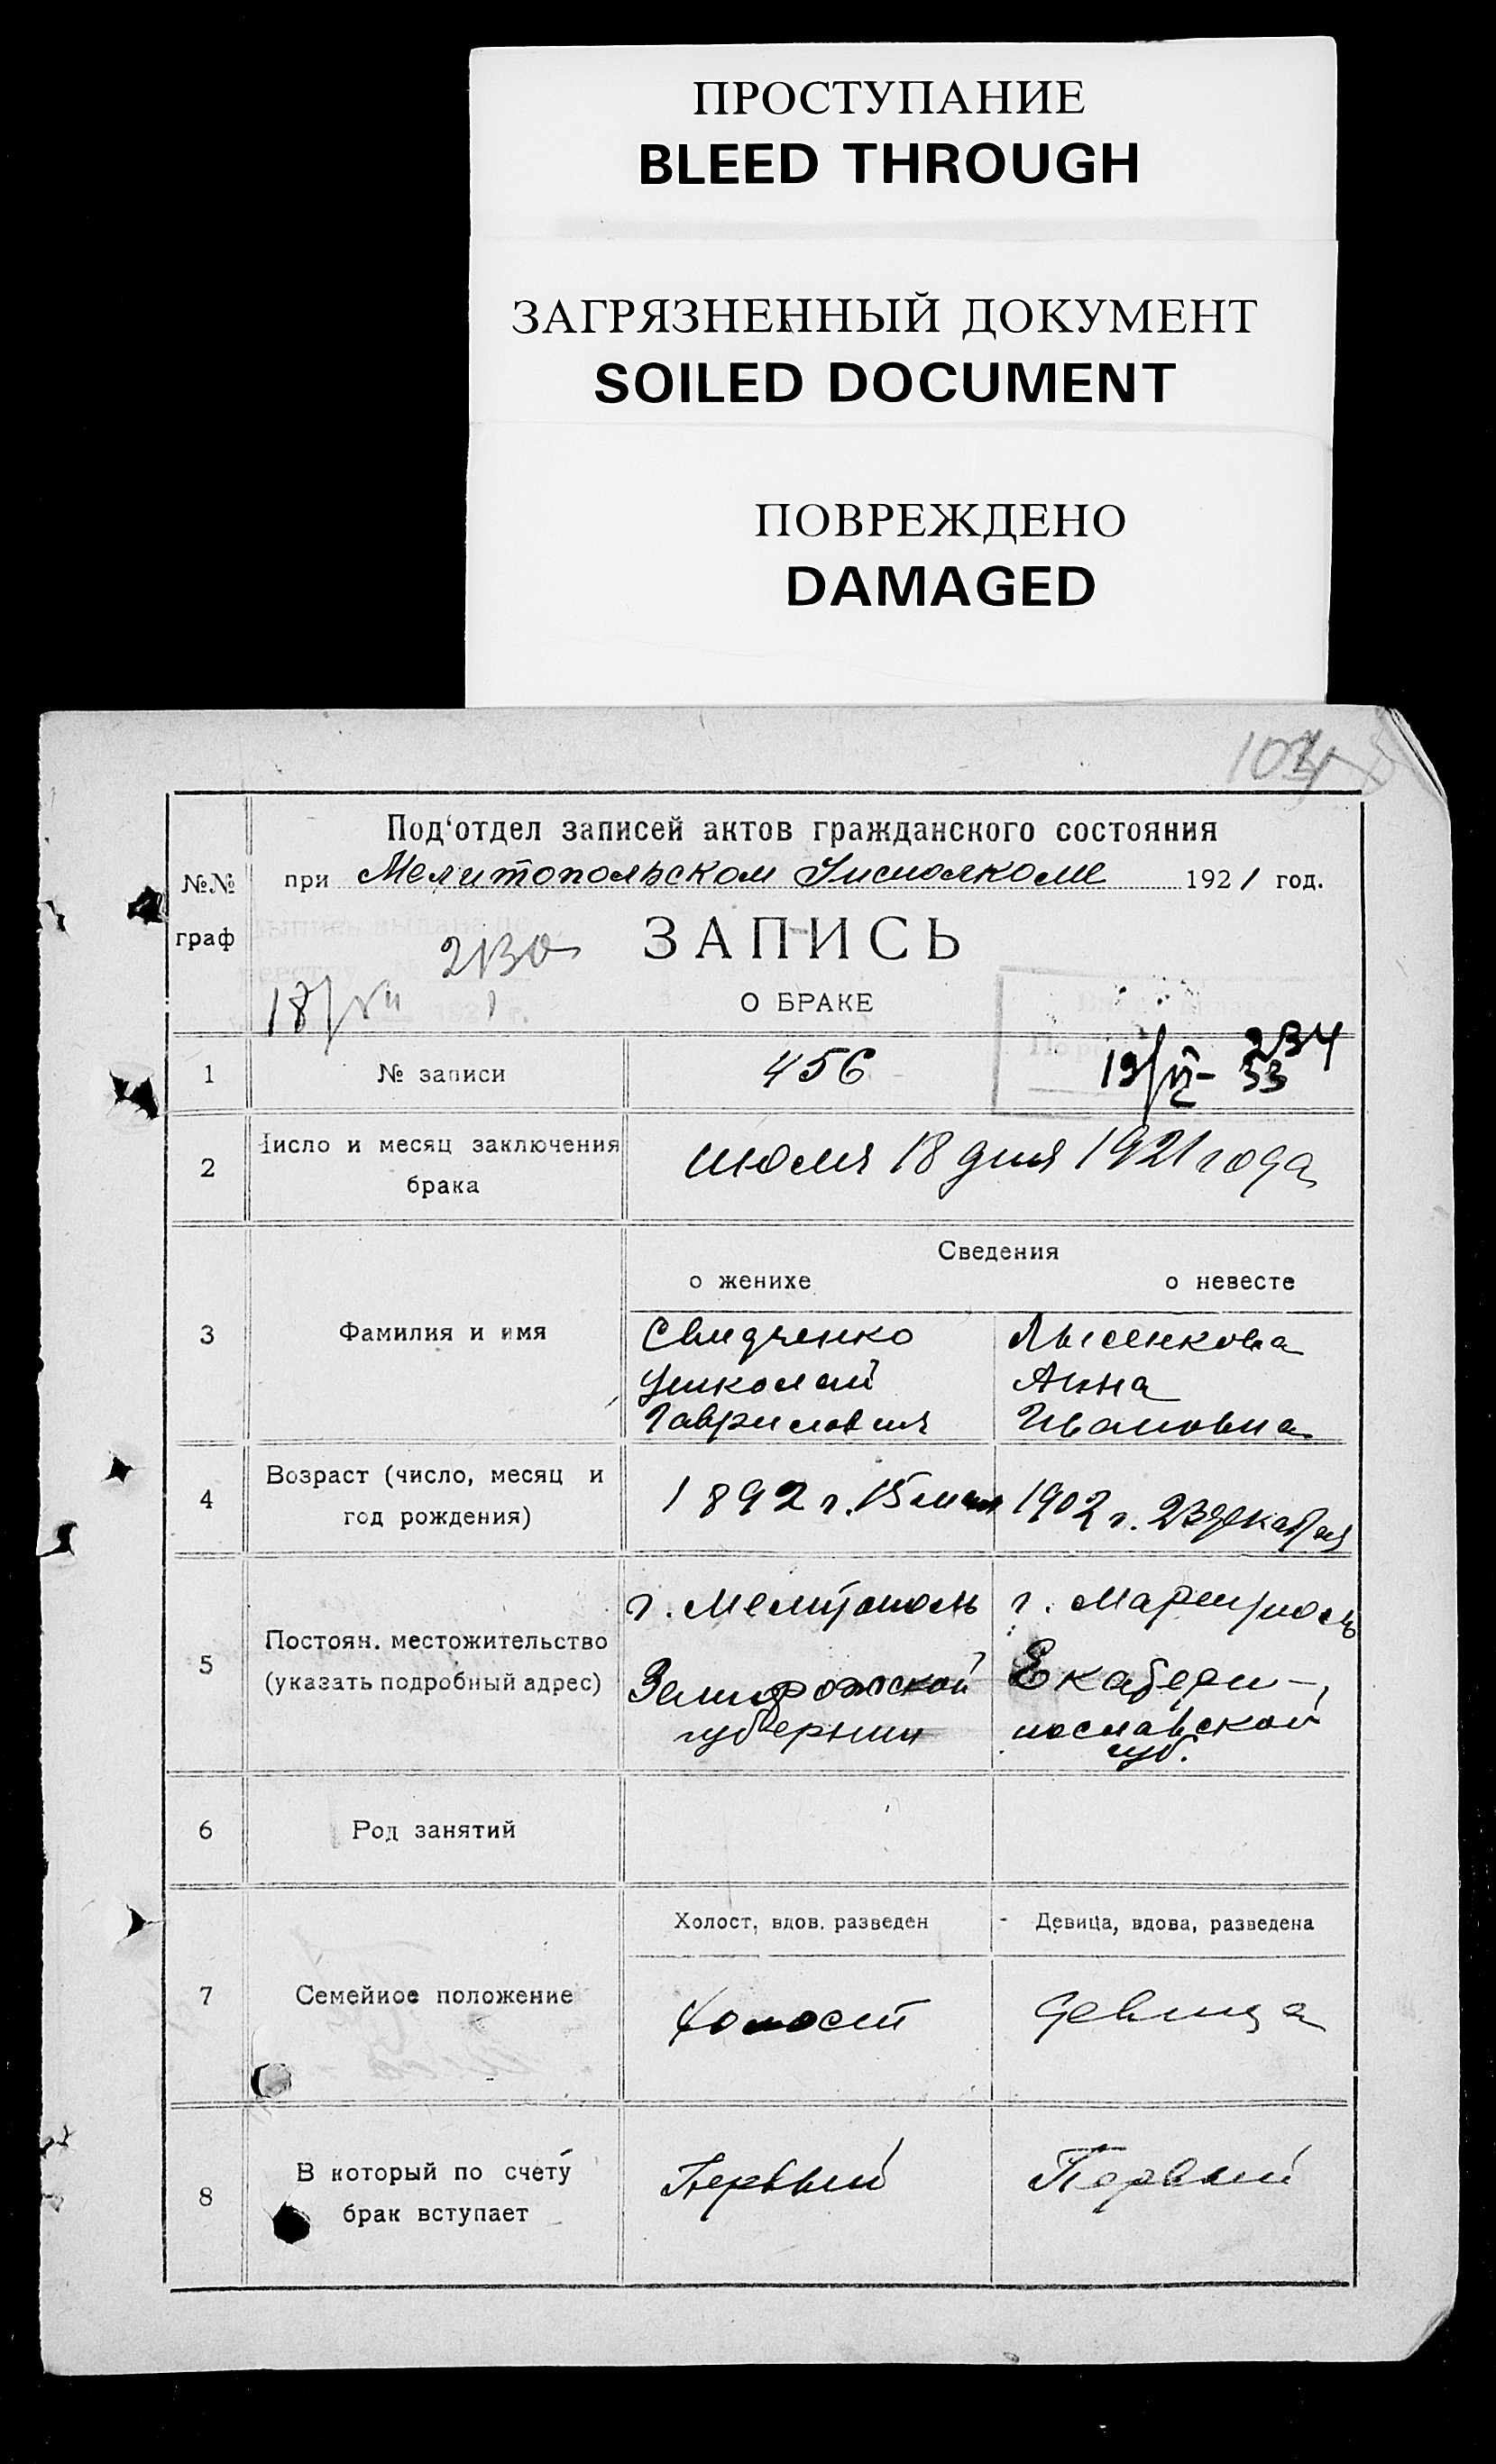 ПРОСТУПАНИЕ
BLEED THROUGH
ЗАГРЯЗНЕННЫЙ ДОКУМЕНТ
SOILED DOCUMENT
ПОВРЕЖДЕНО
DAMAGED
Под‘отдел записей актов гражданского состояния
при Мелитопольском Исполкоме 1921 год.
№№
граф
ЗАПИСЬ
О БРАКЕ
18/VII
1 № записи 456
19/VI- 53
234
2 Число и месяц заключения брака июля 18 дня 1921 года
Сведения
о женихе о невесте
3 Фамилия и имя
Свидченко Лысенкова
Николай Анна
Гаврилович Ивановна
4 Возраст (число, месяц и
год рождения)
1892 г. 15 мая 1902 г. 23 декабря
5 Постоян. местожительство
(указать подробный адрес)
г. Мелитополь г. Мариуполь
Запорожской Екатери-
губернии нославской
губ.
6 Род занятий
Холост, вдов. разведен Девица, вдова, разведена
7 Семейное положение холост девица
8 В который по счету
брак вступает
Первый Первый